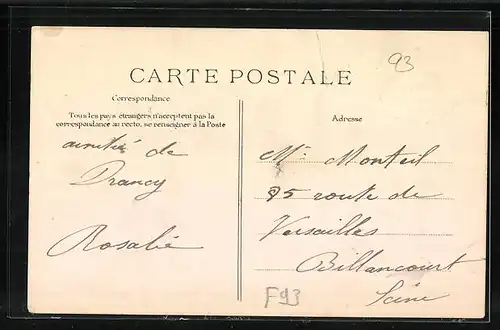 93
CARTE POSTALE
Correspondance
Tous les pays étrangers n'acceptent pas la
correspondance au recto, se renseigner à la Poste
Adresse
amitié de
Drancy
Rosalie
Mr Monteil
95 route de
Versailles
Billancourt
Seine
F93